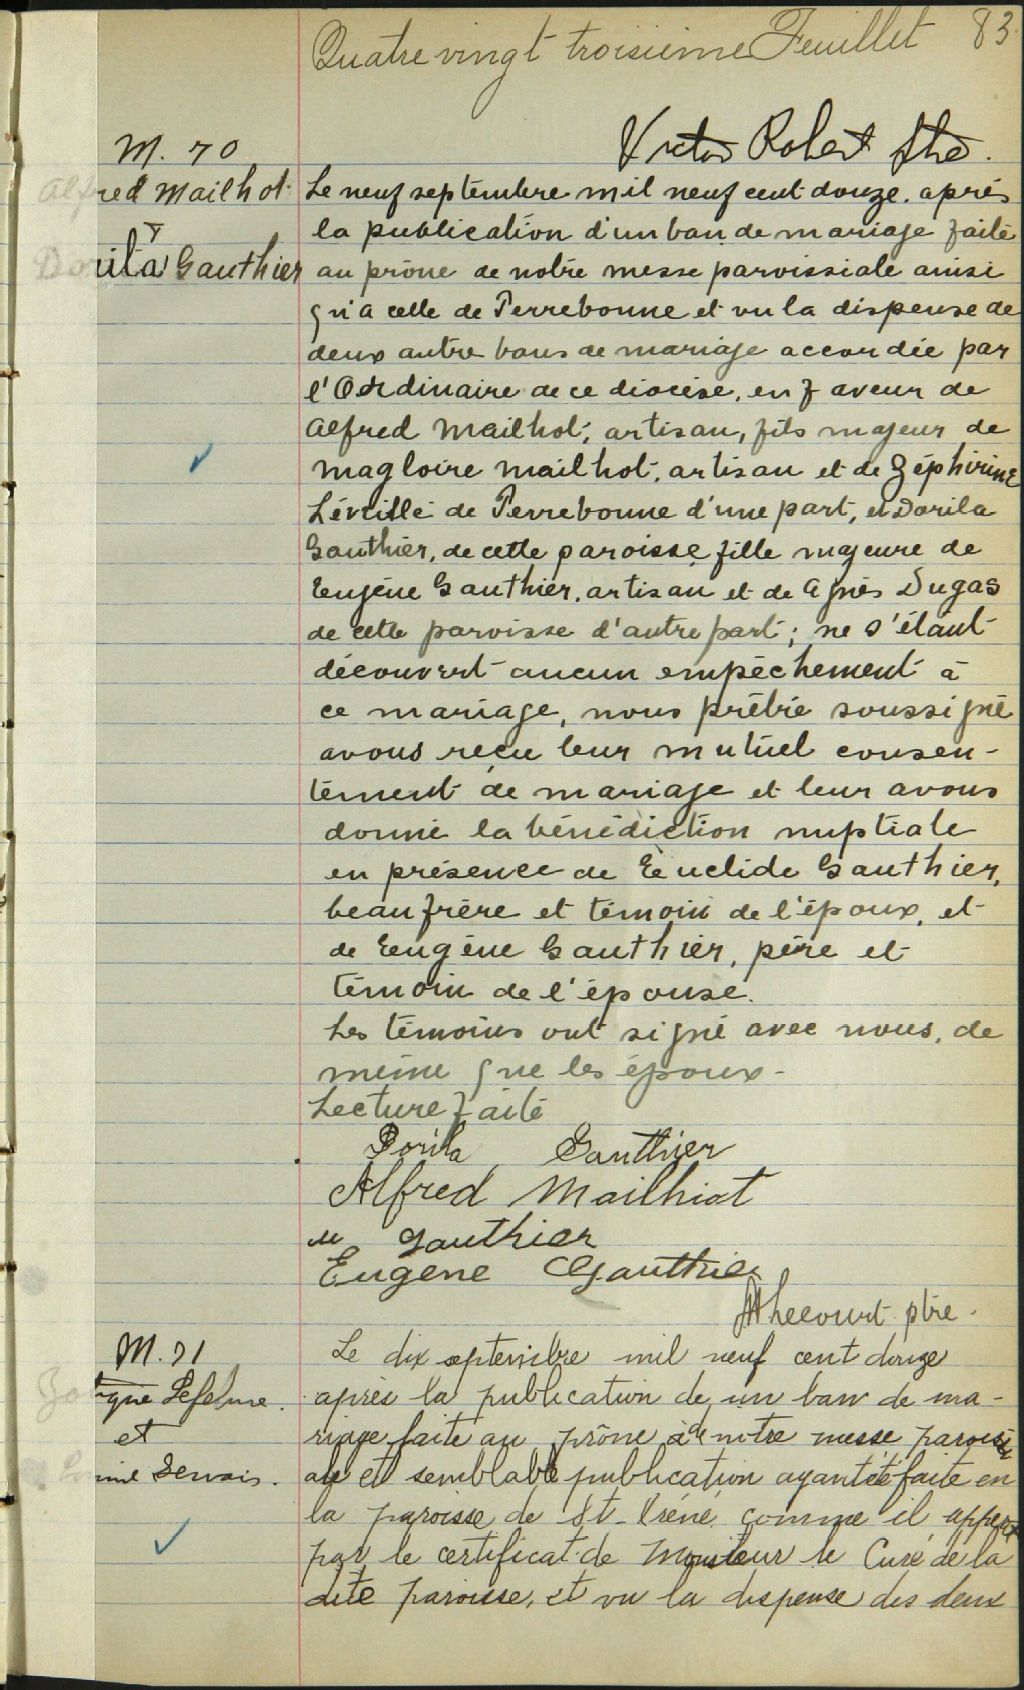 Quatre vingt troisième Feuillet 83
Victor Robert Ptre.
M. 70
Alfred Mailhot
&
Dorila Gauthier
Le neuf septembre mil neuf cent douze. après
la publication d'un ban de mariage faite
au prône de notre messe paroissiale ainsi
qu'a celle de Terrebonne et vu la dispense de
deux autre bans de mariage accordée par
l'Ordinaire de ce diocèse, en faveur de
Alfred Mailhot, artisan, fils majeur de
Magloire Mailhot, artisan et de Zéphirine
Léveillé de Terrebonne d'une part, et Dorila
Gauthier, de cette paroisse fille majeure de
Eugène Gauthier, artisan et de Agnès Dugas
de cette paroisse d'autre part; ne s'étant
découvert aucun empêchement à
ce mariage, nous prêtre soussigné
avons reçu leur mutuel consen-
tement de mariage et leur avons
donné la bénédiction nuptiale
en présence de Euclide Gauthier,
beau frère et témoin de l'époux, et
de Eugène Gauthier, père et
témoin de l'épouse.
Les témoins ont signé avec nous, de
même que les époux -
Lecture faite
Dorila Gauthier
Alfred Mailhiot
Gauthier
Eugène Gauthier
Lhecourt ptre -
M. 71
Lefebvre.
et
Gervais.
Le dix septembre mil neuf cent douze
après la publication de un ban de ma-
riage faite au prône de notre messe paroissi
ale et semblable publication ayant été faite en
la paroisse de St. Iréné comme il appert
par le certificat de Monsieur le Curé de la
dite paroisse, et vu la dispense des deux